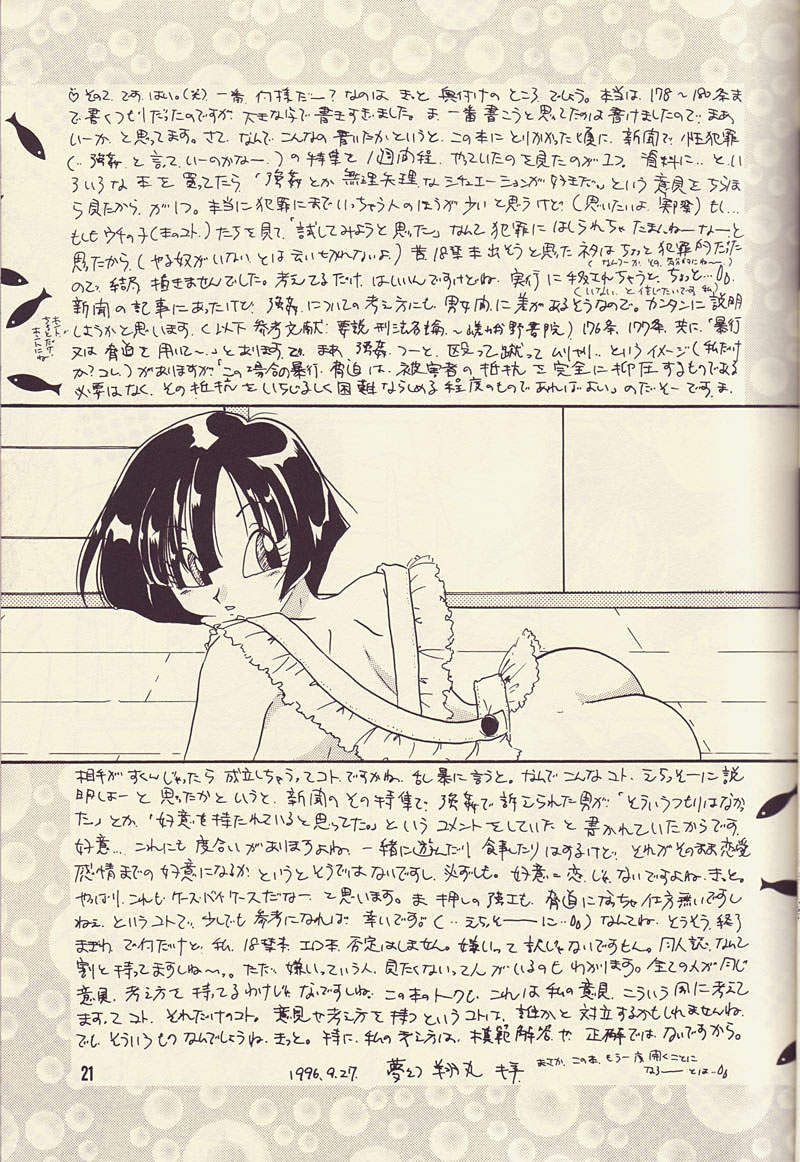 ♡その2.です.はい。(笑).一番.何様だー?なのは.きっと奥付けのところ.でしょう。本当は.178〜180条ま
で書くつもりだったのですが.大きな字で書きすぎました。ま.一番書こうと思ってたのは書けましたので.まあ
いーか.と思ってます。さて.なんでこんなの書いたかというと.この本にとりかかった頃に.新聞で.性犯罪
(‥強姦と言って.いーのかなー.)の特集を1週間程.やっていたのを見たのが1つ.資料に‥とい
ろいろな本を買ってたら「強姦とか無理矢理なシチュエーションが好きだ。」という意見をちらほ
ら見たから.が1つ。本当に犯罪にまでいっちゃう人のほうが少いと思うけど(思いたいよ.実際)もし…
もしもウチの子(本のコト.)たちを見て「試してみようと思った」なんて犯罪にはしられちゃたまんねーなーと
思ったから.(やる奴がいないとは言いきれないよ.)昔.18禁本出そうと思ったネタはちょっと犯罪的だった
ので.結局.描きませんでした。考えてるだけ.はいいんですけどね.実行に移されちゃうと.ちょっと…
(いない.と信じたいです.私)
新聞の記事にあったけど.強姦.についての考え方にも.男女間に差があるそうなので。カンタンに説明
しようかと思います.(以下.参考文献:要説 刑法各論〜嵯峨野書院)176条.177条.共に.「暴行
又は脅迫を用いて〜.」とあります.が.まあ.強姦.つーと.殴って蹴ってムリヤリ‥というイメージ(私だけ
か?コレ.)がありますが「この場合の暴行.脅迫は.被害者の抵抗を完全に抑圧するものである
必要はなく.その抵抗をいちじるしく困難ならしめる程度のものであればよい」のだそーです.ま.
相手がすくんじゃったら成立しちゃうってコトですかね.乱暴に言うと。なんでこんなコト.えらそーに説
明しよーと思ったかというと.新聞のその特集で強姦で訴えられた男が「そういうつもりはなかっ
た」とか.「好意を持たれていると思ってた。」というコメントをしていたと書かれていたからです.
好意….これにも度合いがありますよね.一緒に遊んだり食事したりはするけど.それがそのまま恋愛
感情までの好意になるかというとそうではないですし.必ずしも。好意=恋.じゃないですよね.きっと。
やはり.これもケースバイケースだなー.て思います。ま.押しの強さも.脅迫になっちゃ仕方無いですし
ねぇ.というコトで.少しでも参考になれば幸いです。(‥えらそーーーに‥)なんてね.そうそう.終了
まぎわ.で何だけど.私.18禁本.エロ本.否定はしません。嫌いって訳じゃないですもん。同人誌.なんて
割と持ってますしね〜。ただ.嫌いっていう人.見たくないって人がいるのもわかります。全ての人が同じ
意見.考え方を持ってるわけじゃないですしね.この本のトークも.これは私の意見.こういう風に考えて
ますってコト.それだけのコト。意見や考え方を持つというコトは.誰かと対立するかもしれませんね.
でもそういうものなんでしょうね.きっと。特に.私の考え方は.模範解答や正解ではないですから。
1996.9.27.
まさか.この本.もう一度開くことに
なろーとは‥
21